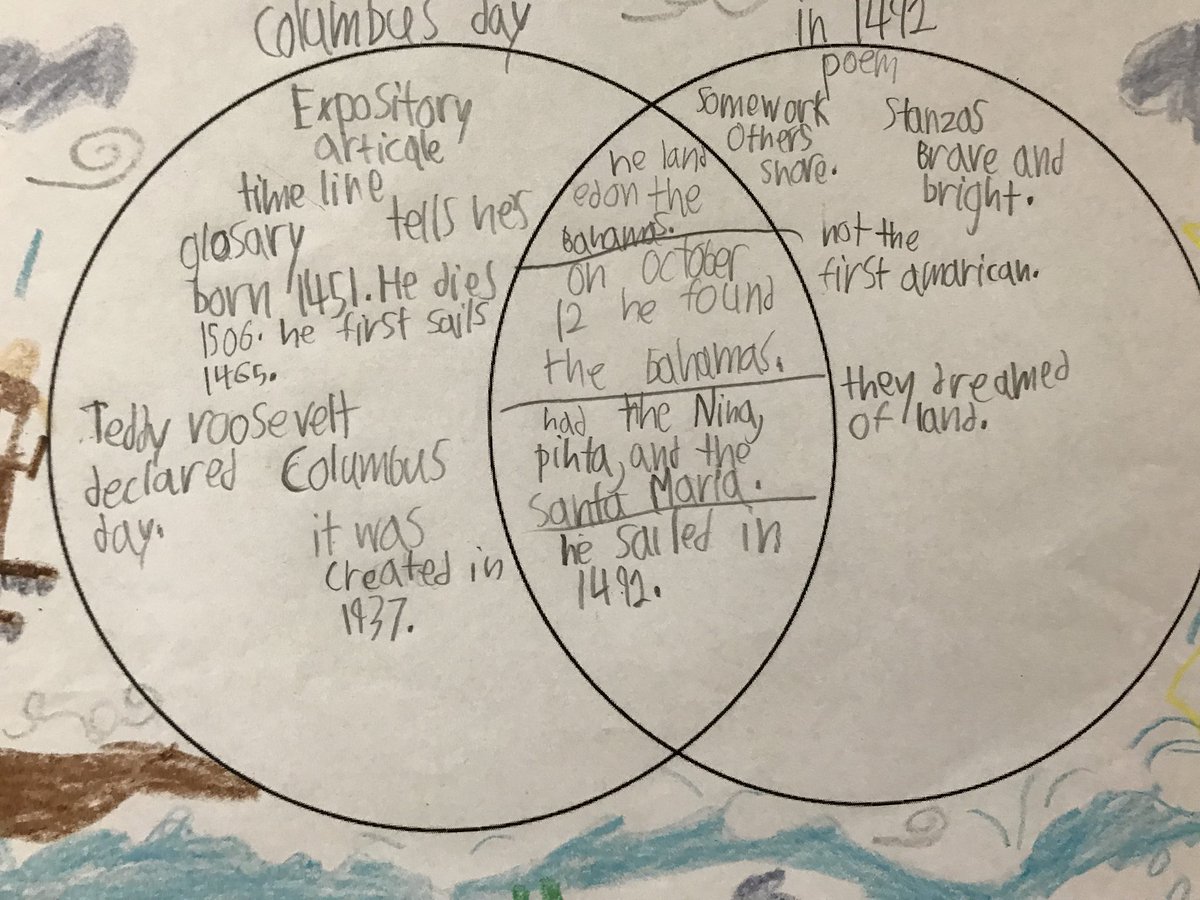 Columbus day
Expository
articqle
time line
glosary
tells he's
born 1451. He dies
1506. he first sails
1465.
Teddy roosevelt
declared Columbus
day.
it was
created in
1937.
he land
edon the
Bahamas.
on october
12 he found
the bahamas.
had the Nina,
pinta, and the
Santa Maria.
he sailed in
1492.
in 1492
poem
Somework
Others
snore.
Stanzas
Brave and
bright.
not the
first amarican.
they dreamed
of land.